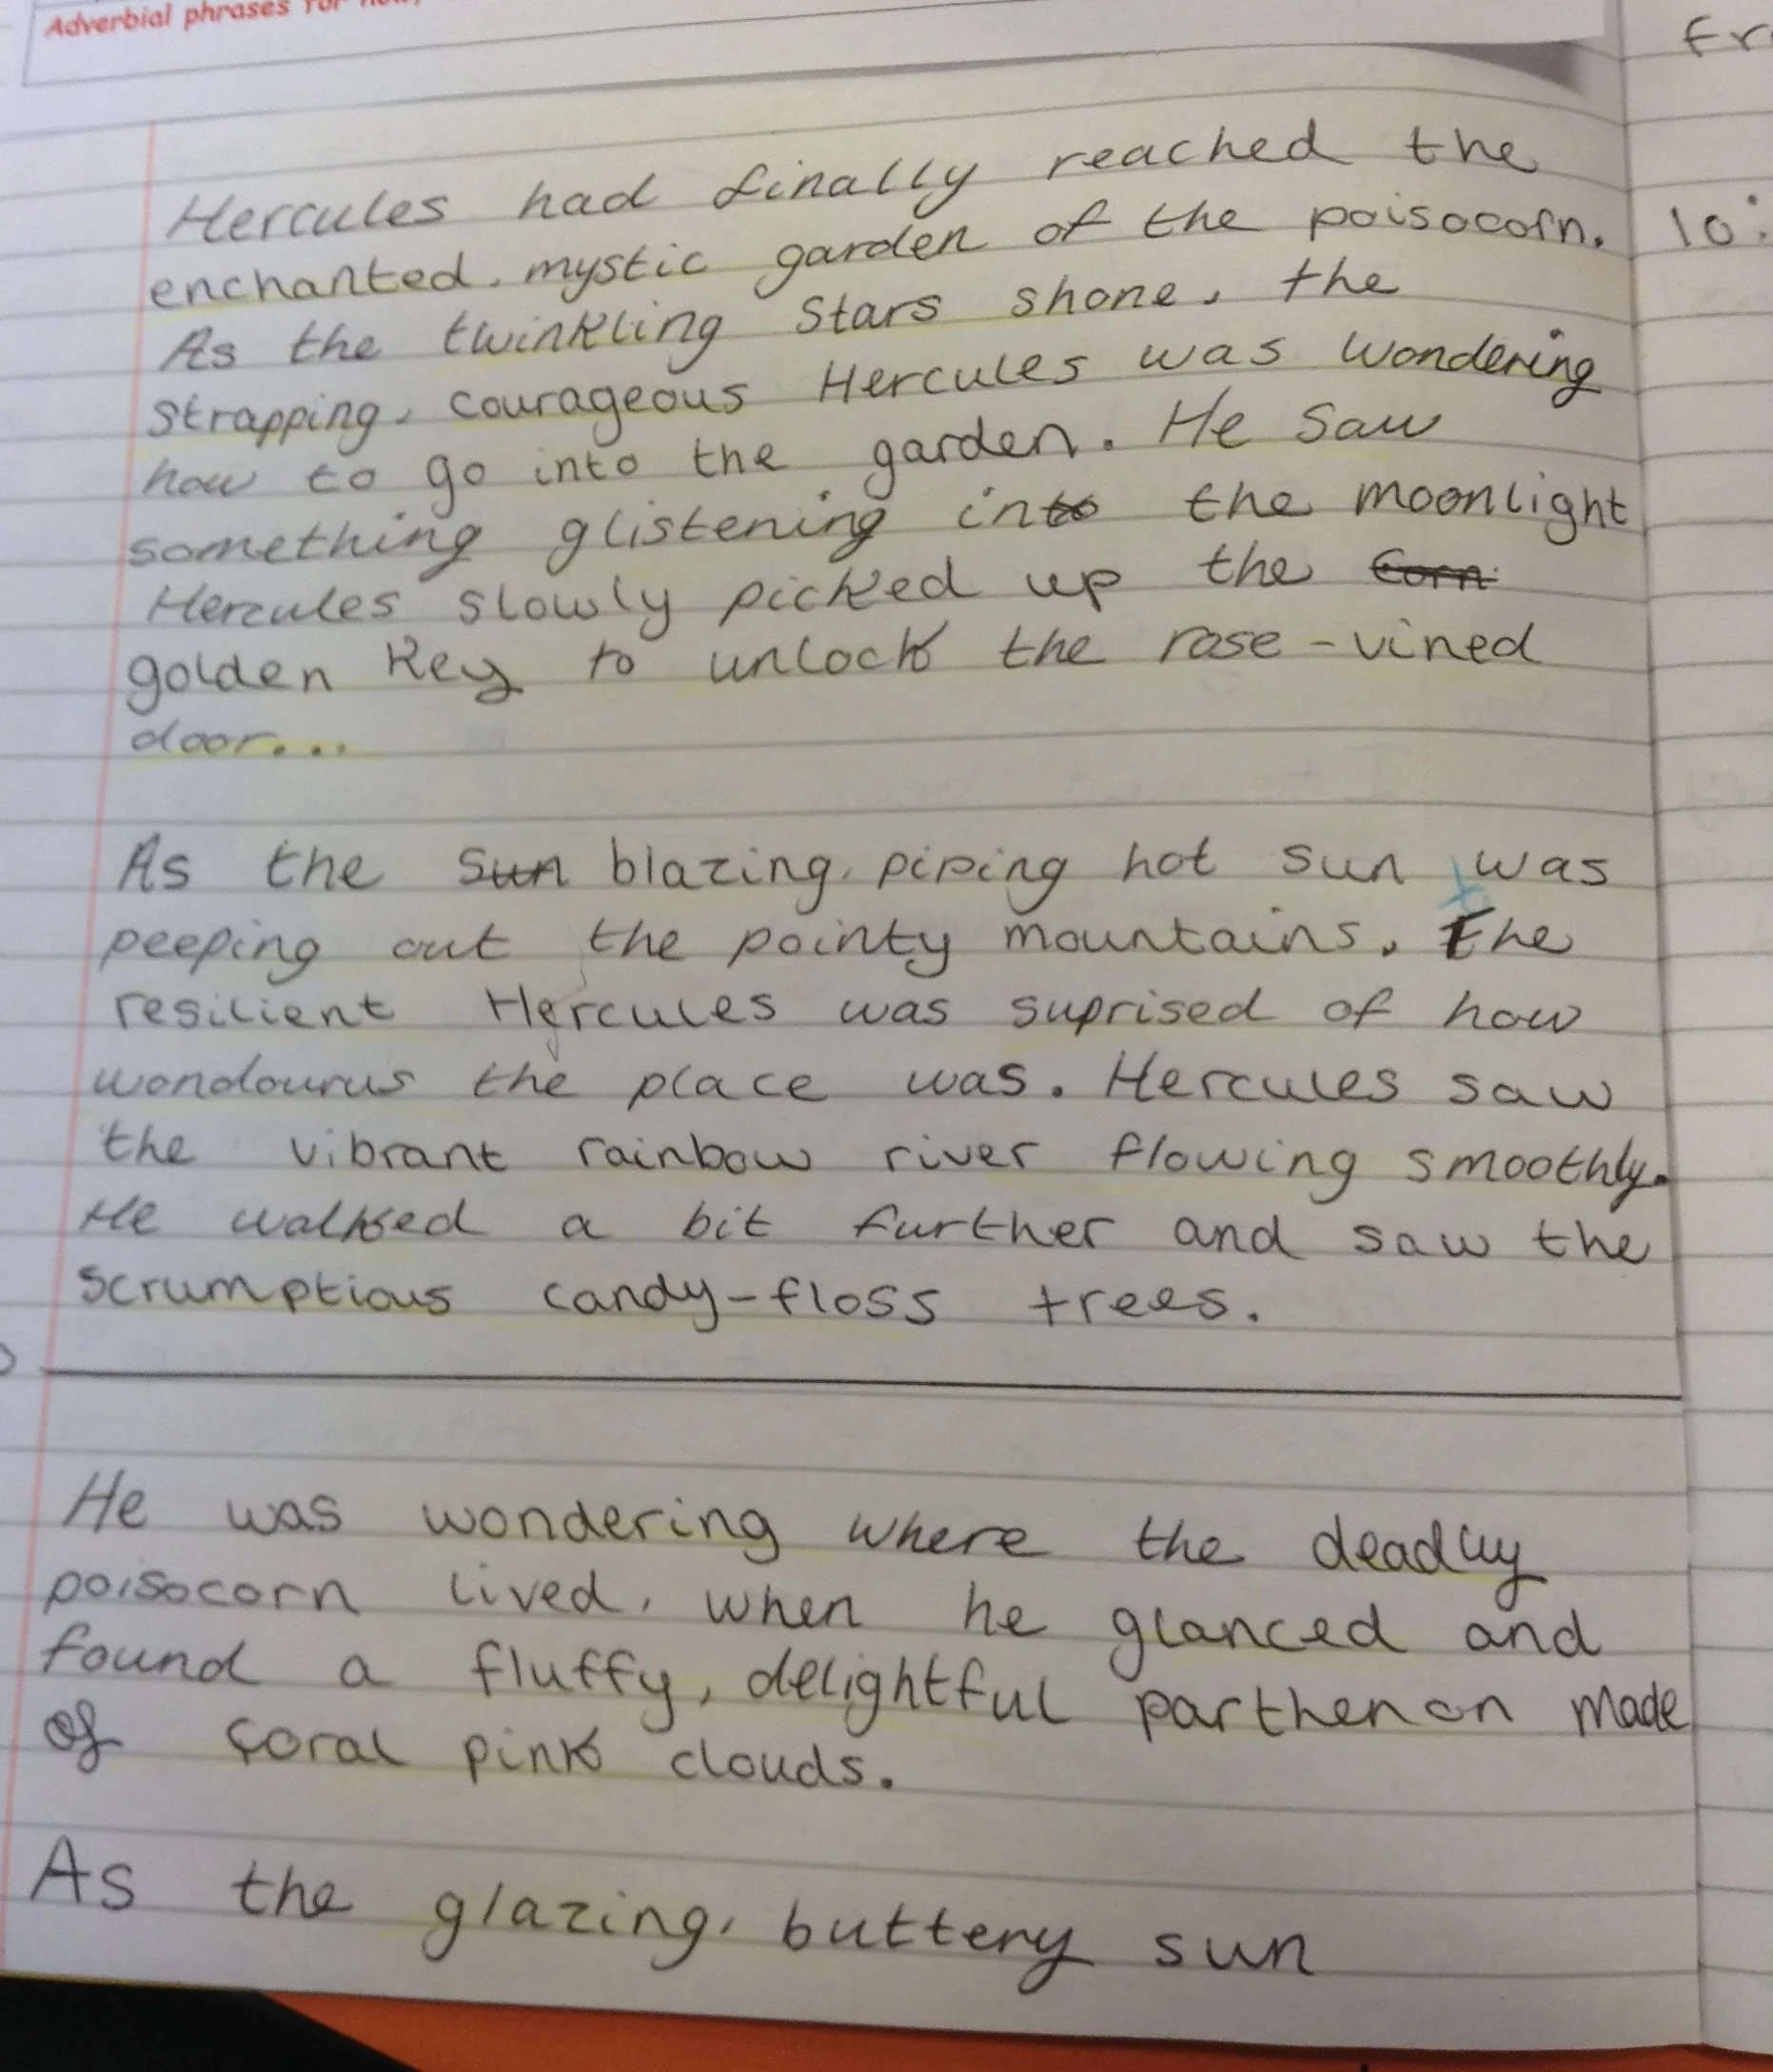 Adverbial phrases for
Hercules had finally reached the
enchanted, mystic garden of the poisocorn.
As the twinkling stars shone, the
strapping, courageous Hercules was wondering
how to go into the garden. He saw
something glistening in the moonlight
Hercules slowly picked up the corn
golden key to unlock the rose-vined
door...
As the sun blazing, piping hot sun was
peeping out the pointy mountains, the
resilient Hercules was suprised of how
wondourus the place was. Hercules saw
the vibrant rainbow river flowing smoothly.
He walked a bit further and saw the
scrumptious candy-floss trees.
He was wondering where the deadly
poisocorn lived, when he glanced and
found a fluffy, delightful parthenon made
of coral pink clouds.
As the glazing, buttery sun
10: